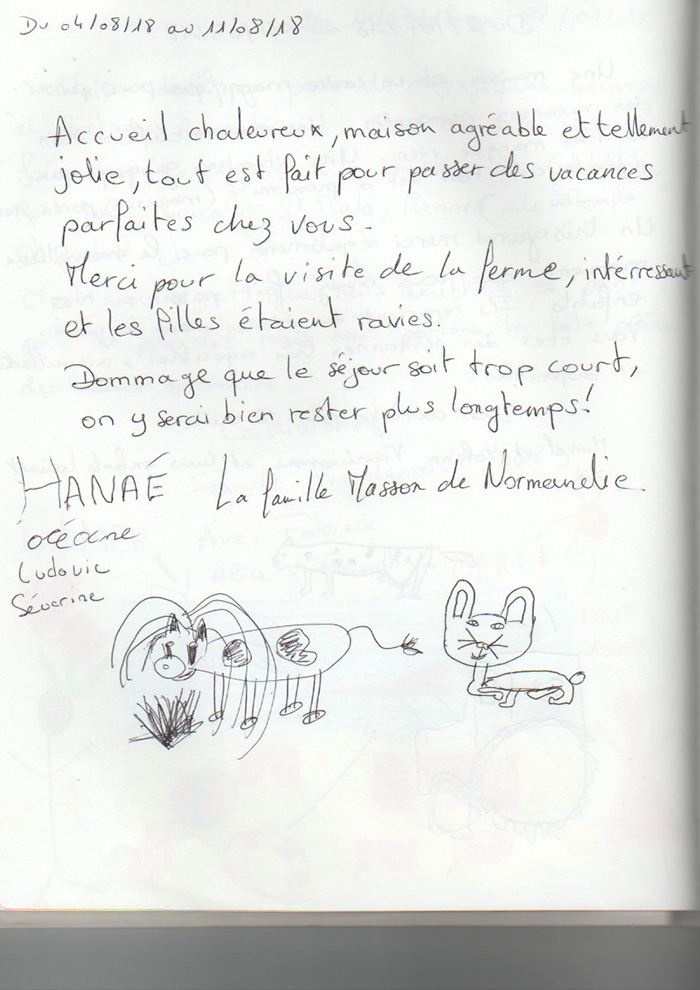 Du 04/08/18 au 11/08/18
Accueil chaleureux, maison agréable et tellement
jolie, tout est fait pour passer des vacances
parfaites chez vous.
Merci pour la visite de la ferme, intérressant
et les filles étaient ravies.
Dommage que le séjour soit trop court,
on y serai bien rester plus longtemps!
HANAÉ La famille Masson de Normandie.
océane
Ludovic
Séverine